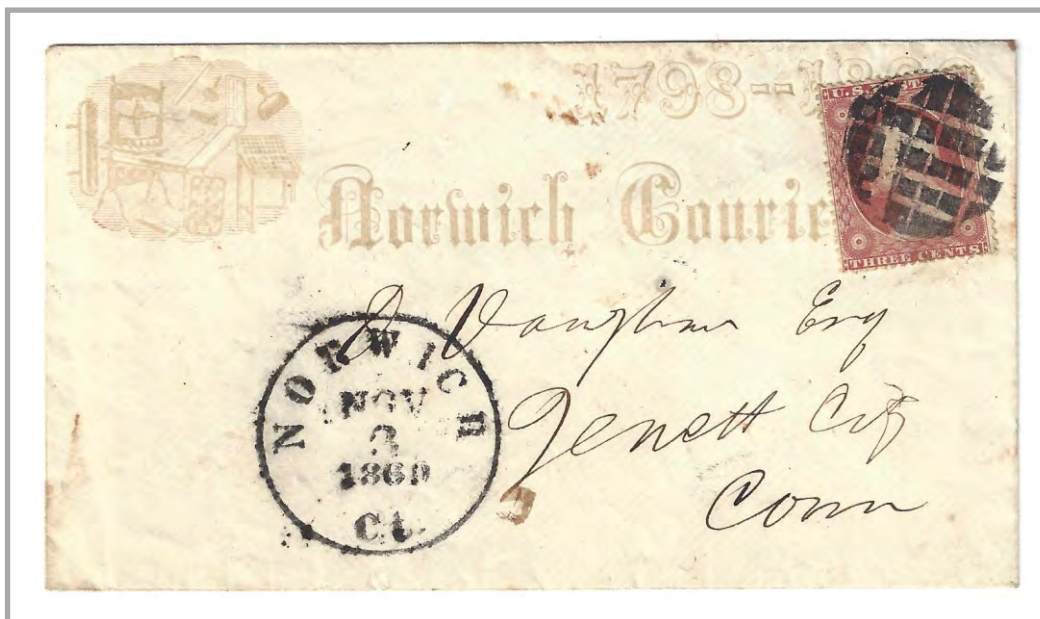 1798--18
U.S. POST
Norwich Courie
THREE CENTS
D Vaughan Esq
Jewett City
Conn
NORWICH
NOV
3
1860
Ct.